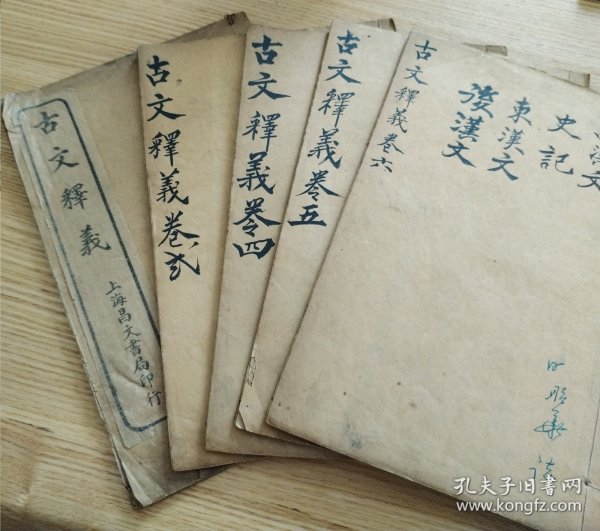 古文釋義
上海昌文書局印行
古文釋義卷弍
古文釋義卷四
古文釋義卷五
古文釋義卷六
漢文
史記
東漢文
後漢文
孔夫子旧书网
www.kongfz.com